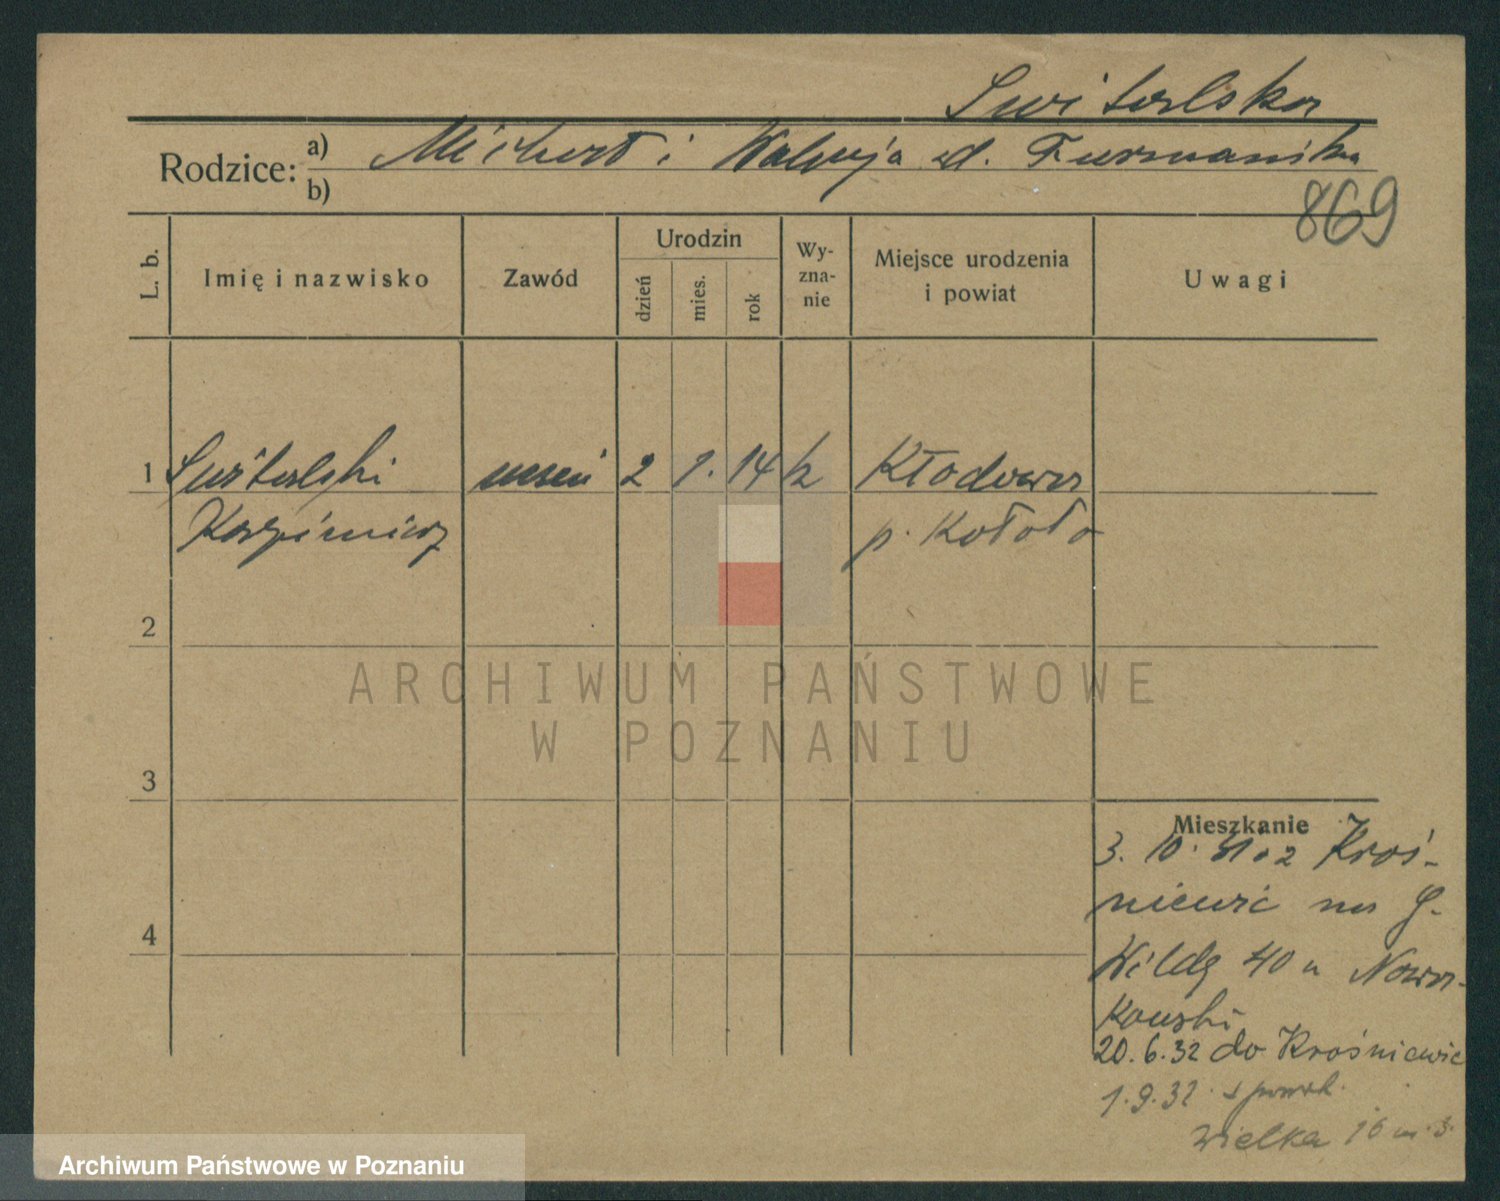 Switalska
Rodzice: a) Michał i Walerja d. Furmańska
b)
869
L. b.
Imię i nazwisko
Zawód
Urodzin
dzień
mies.
rok
Wy-
zna-
nie
Miejsce urodzenia
i powiat
Uwagi
1 Switalski uczeń 2 1. 14 k Kłodawa
Kazimierz p. Koło
2
ARCHIWUM PAŃSTWOWE
W POZNANIU
3
Mieszkanie
3. 10. 31 z Kroś-
niewic na G.
4
Wildę 40 u Nowa-
kowski
20.6.32 do Krośniewic
1.9.32 z powr.
Wielka 16 m. 3.
Archiwum Państwowe w Poznaniu